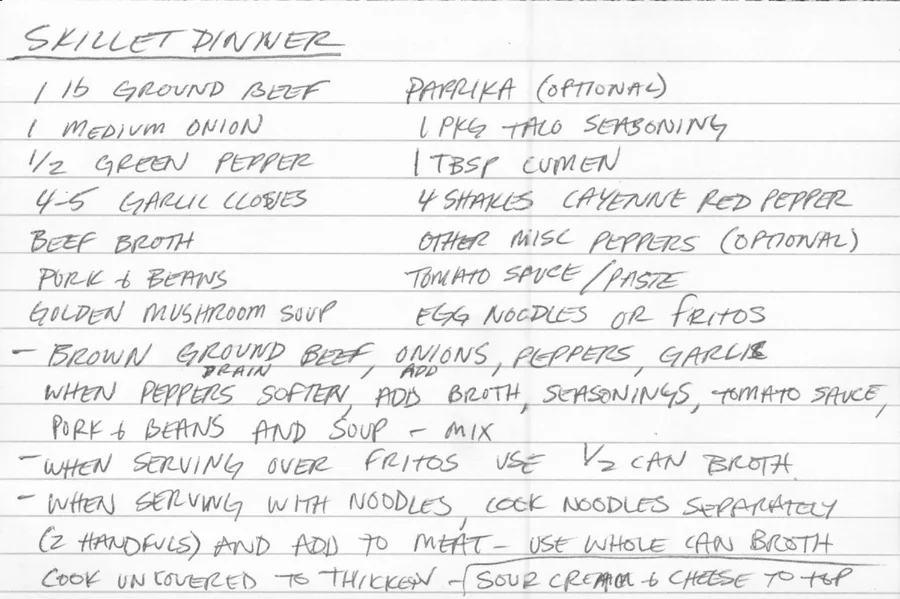 SKILLET DINNER
1 lb GROUND BEEF PAPRIKA (OPTIONAL)
1 MEDIUM ONION 1 PKG TACO SEASONING
1/2 GREEN PEPPER 1 TBSP CUMEN
4-5 GARLIC CLOVES 4 SHAKES CAYENNE RED PEPPER
BEEF BROTH OTHER MISC PEPPERS (OPTIONAL)
PORK & BEANS TOMATO SAUCE/PASTE
GOLDEN MUSHROOM SOUP EGG NOODLES OR FRITOS
- BROWN GROUND BEEF, ONIONS, PEPPERS, GARLIC
DRAIN, ADD
WHEN PEPPERS SOFTEN, ADD BROTH, SEASONINGS, TOMATO SAUCE,
PORK & BEANS AND SOUP - MIX
- WHEN SERVING OVER FRITOS USE 1/2 CAN BROTH
- WHEN SERVING WITH NOODLES, COOK NOODLES SEPARATELY
(2 HANDFULS) AND ADD TO MEAT - USE WHOLE CAN BROTH
COOK UNCOVERED TO THICKEN - SOUR CREAM & CHEESE TO TOP